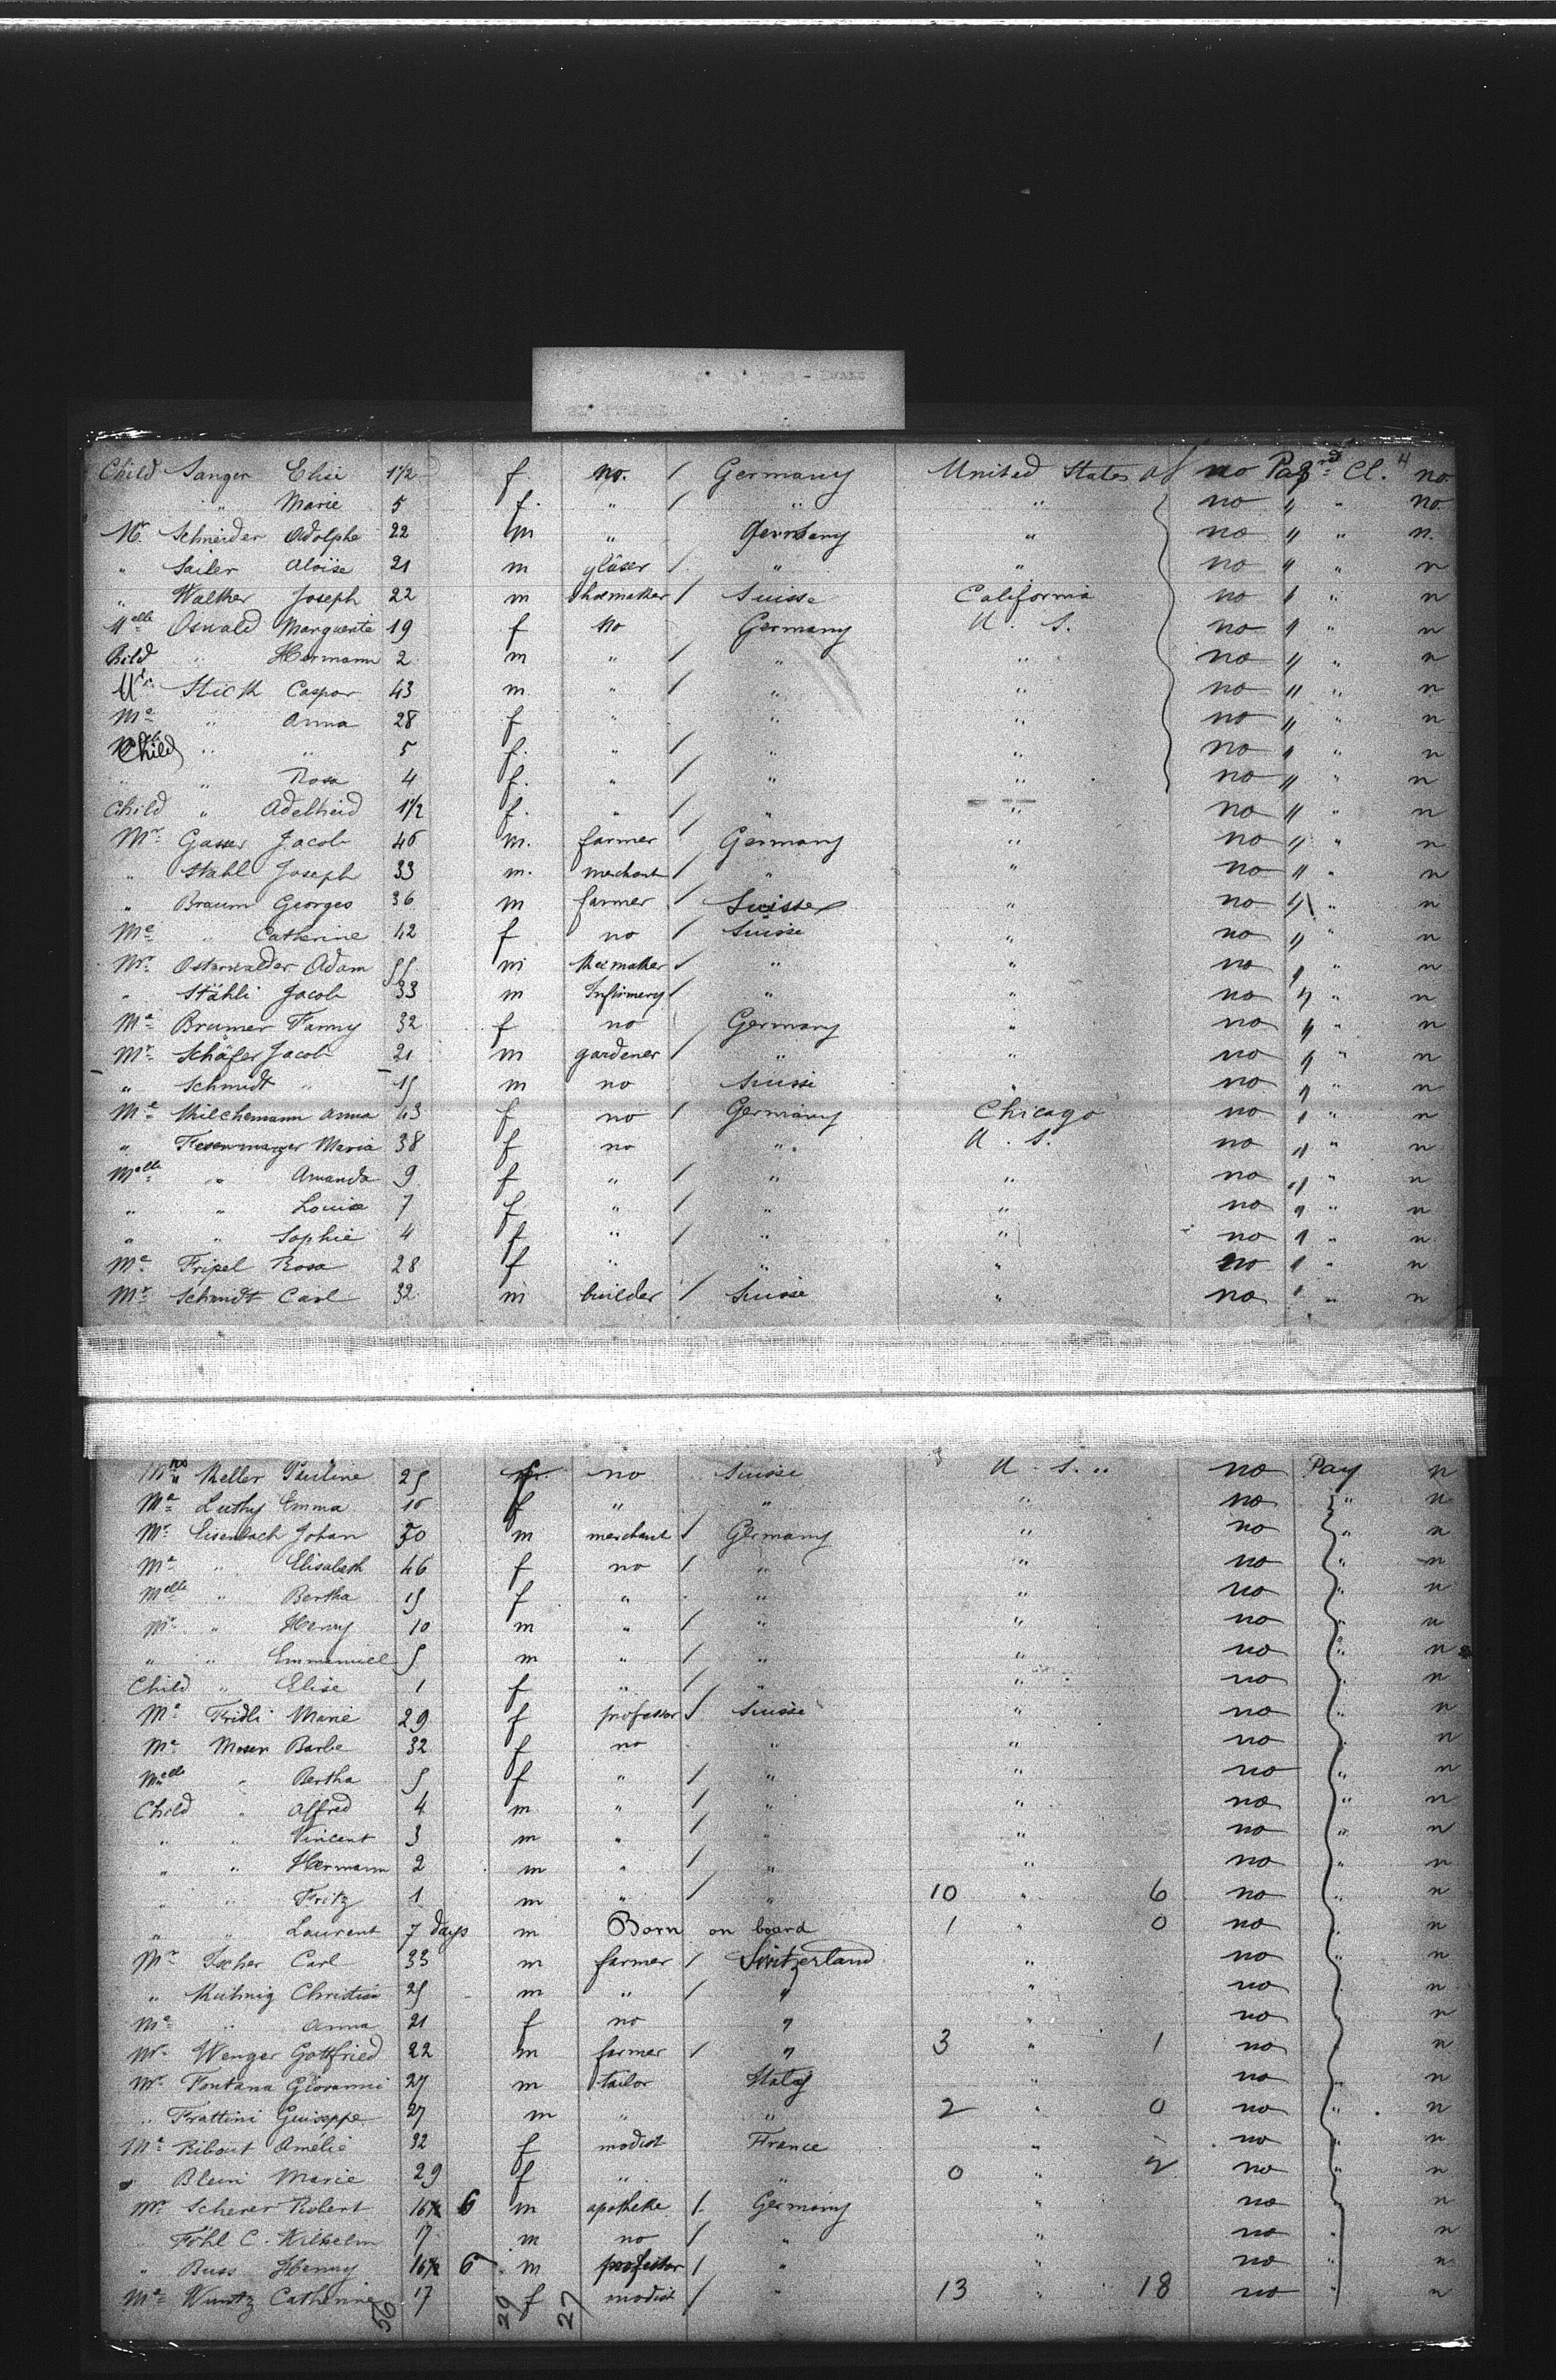 Child Sanger Elise 1 1/2 f. no. / Germany United States of no Pas 3rd Cl. 4 no.
" Marie 5 f. " / " " no " " no.
Mr. Schneider Adolphe 22 m " Germany " no " " n.
" Sailer Aloise 21 m gläser / " " no " " n
" Walther Joseph 22 m Shoemaker / Suisse California no " " n
Melle Oswald Marguerite 19 f No Germany U. S. no " " n
Child " Hermann 2 m " / " " no " " n
Mr. Stich Caspar 43 m. " / " " no " " n
Me " Anna 28 f " " " no " " n
Child " " 5 f. " / " " no " " n
" " Rosa 4 f. " / " " no " " n
Child " Adelheid 1 1/2 f. " / " " no " " n
Mr. Gasser Jacob 46 m. farmer / Germany " no " " n
" Stahl Joseph 33 m. merchant / " " no " " n
" Braum Georges 36 m farmer / Suisse " no " " n
Me " Catherine 42 f no / Suisse " no " " n
Mr. Osterwalder Adam 55 m " " no " " n
" Stähli Jacob 33 m Infirmery / " " no " " n
Me Brumer Fanny 32 f no / Germany " no " " n
Mr. Schäfer Jacob 21 m gardener / " " no " " n
" Schmidt " 15 m no Suisse " no " " n
Me Milchemann Anna 43 f no / Germany Chicago no " " n
" Maria 38 f no " U. S. no " " n
Melle " Amanda 9 f " / " " no " " n
" " Louise 7 f " / " " no " " n
" " Sophie 4 f " / " " no " " n
Me Fripel Rosa 28 f " " " no " " n
Mr. Schmidt Carl 32 m builder / Suisse " no " " n
Keller Pauline 25 f no Suisse U. S. " no Pay n
Me Luthy Emma 16 f " " " no " n
Mr. Eisenbach Johan 50 m merchant / Germany " no " n
Me " Elisabeth 46 f no / " " no " n
Melle " Bertha 15 f " " " no " n
Mr. " Henry 10 m " / " " no " n
" " Emmanuell 5 m " / " " no " n
Child " Elise 1 f " / " " no " n
Me Fridli Marie 29 f professor / Suisse " no " n
Me Moser Barbe 32 f no " " no " n
Melle " Bertha 5 f " / " " no " n
Child " Alfred 4 m " / " " no " n
" " Vincent 3 m " / " " no " n
" " Hermann 2 m " / " " no " n
" " Fritz 1 m " / " 10 " 6 no " n
" " Laurent 7 days m Born on board 1 " 0 no " n
Mr Carl 33 m farmer / Switzerland " no " n
" Kuhnig Christian 25 m " / " " no " n
Me " Anna 21 f no " " no " n
Mr. Wenger Gottfried 22 m farmer / " 3 " 1 no " n
Mr. Fontana Giovanni 27 m tailor Italy " no " n
" Frattini Guiseppe 27 m " " 2 " 0 no " n
Me Ribout Amélie 32 f modist France " no " n
" Blein Marie 29 f " " 0 " 2 no " n
Mr Scherer Robert 16 1/2 6 m apotheke / Germany " no " n
" Föhl C. Wilhelm 17 m no / " " no " n
" Buss Henry 16 1/2 6 m professor / " " no " n
Me Wuntz Catherine 17 f modist / " 13 " 18 no " n
56 29 27